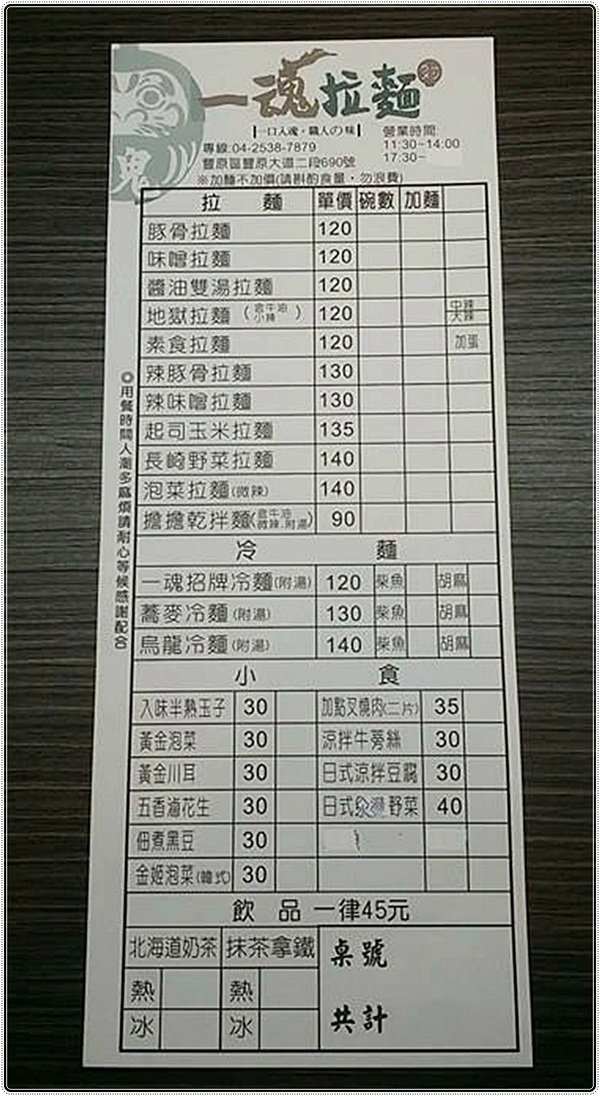 鬼
一魂拉麵
一口入魂・職人の味
營業時間:
專線:04-2538-7879
11:30-14:00
豐原區豐原大道二段690號
17:30-
※加麵不加價(請斟酌食量・勿浪費)
拉 麵 單價 碗數 加麵
豚骨拉麵 120
味噌拉麵 120
醬油雙湯拉麵 120
地獄拉麵 (含牛油 小辣) 120 中辣 大辣
素食拉麵 120 加蛋
辣豚骨拉麵 130
辣味噌拉麵 130
起司玉米拉麵 135
長崎野菜拉麵 140
泡菜拉麵(微辣) 140
擔擔乾拌麵(含牛油 微辣.附湯) 90
冷 麵
一魂招牌冷麵(附湯) 120 柴魚 胡麻
蕎麥冷麵(附湯) 130 柴魚 胡麻
烏龍冷麵(附湯) 140 柴魚 胡麻
小 食
入味半熟玉子 30 加點叉燒肉(二片) 35
黃金泡菜 30 涼拌牛蒡絲 30
黃金川耳 30 日式涼拌豆腐 30
五香滷花生 30 日式 野菜 40
佃煮黑豆 30
金姬泡菜(韓式) 30
飲 品 一律45元
北海道奶茶 抹茶拿鐵 桌號
熱 熱
冰 冰 共計
◎用餐時間人潮多麻煩請耐心等候感謝配合